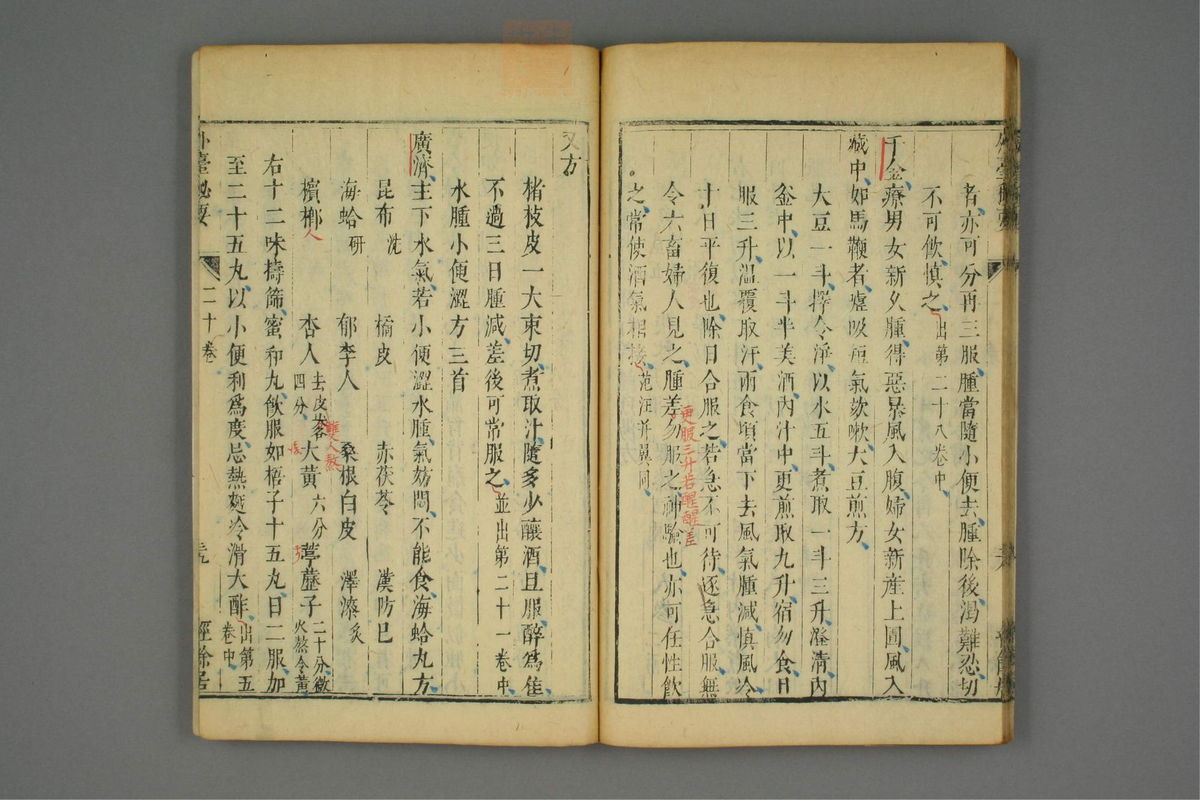 者亦可分再三服腫當隨小便去腫除後渴難忍切
不可飲慎之出第二十八卷中
千金療男女新久腫得惡暴風入腹婦女新産上圊風入
藏中如馬鞭者噓吸短氣欬嗽大豆煎方
大豆一斗擇令淨以水五斗煮取一斗三升澄清內
釜中以一斗半美酒內汁中更煎取九升宿勿食旦
服三升溫覆取汗兩食頃當下去風氣腫減慎風冷
十日平復也除日合服之若急不可待逐急合服無
令六畜婦人見之腫差勿服之神驗也亦可任性飲
更服三升若醒醒差
之常使酒氣相接范汪併翼同
又方
楮枝皮一大束切煮取汁隨多少釀酒且服醉為佳
不過三日腫減差後可常服之並出第二十一卷中
水腫小便澀方三首
廣濟主下水氣若小便澀水腫氣妨悶不能食海蛤丸方
昆布洗 橘皮 赤茯苓 漢防巳
海蛤研 郁李人 桑根白皮 澤漆炙
檳榔人 杏人去皮尖各四分 大黃六分 葶藶子二十分微火熬令黃
雙人熬
右十二味擣篩蜜和丸飲服如梧子十五丸日二服加
至二十五丸以小便利為度忌熱麪冷滑大酢出第五卷中
外臺秘要 二十卷 經餘居